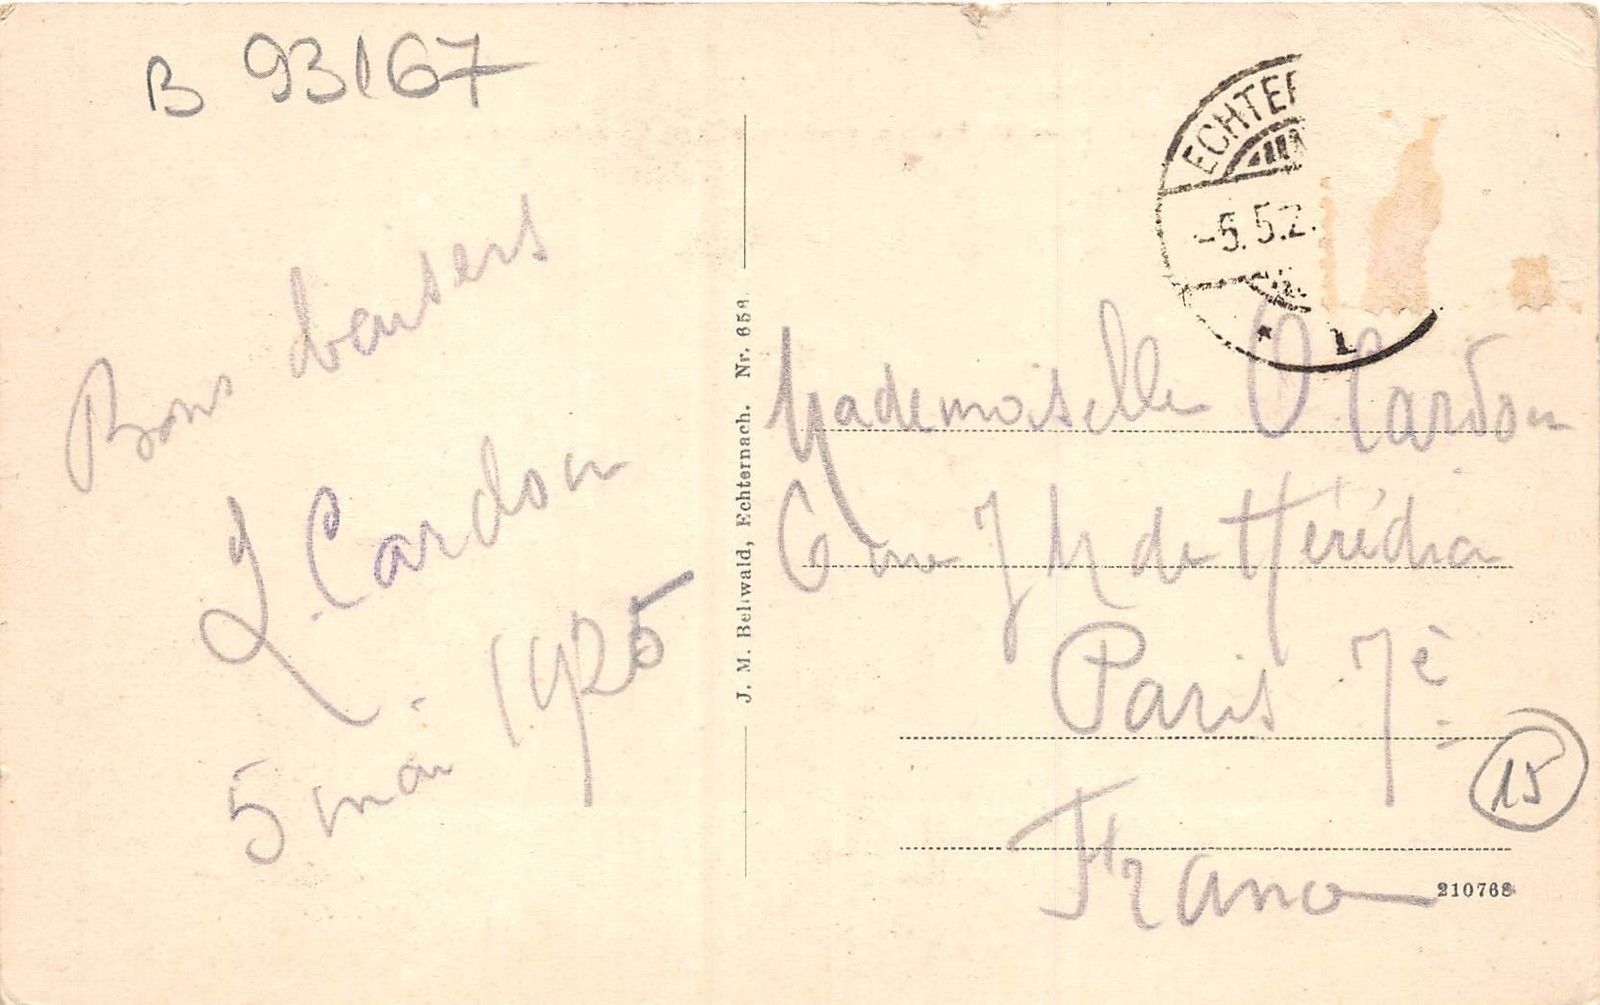 B 93167
Bons baisers
L. Cardon
5 mai 1925
J. M. Bellwald, Echternach. Nr. 658
ECHTER
-5.5.2.
* 1
Mademoiselle O Cardon
6 rue J M de Hérédia
Paris 7è
France
15
210768